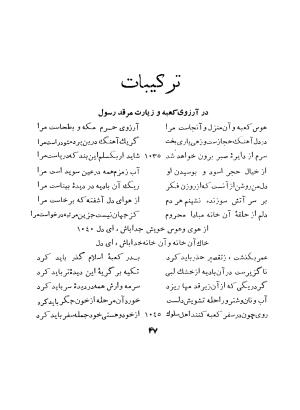 ترکیبات
در آرزوی کعبه و زیارت مرقد رسول
هوس کعبه و آن منزل و آنجاست مرا آرزوی حرم مکه و بطحاست مرا
در دل آهنگ حجازست و زهی یاری بخت گر یک آهنگ درین پرده شود راست مرا
سرم از دایرهٔ صبر برون خواهد شد ۱۰۳۵ شاید ار بگسلم این بند که در پاست مرا
از خیال حجر اسود و بوسیدن او آب زمزم همه در عین سویداست مرا
دل من روشن از آنست که از روزن فکر ریگ آن بادیه در دیدهٔ بیناست مرا
بر سر آتش سوزنده نشینم هر دم از هوای دل آشفته که برخاست مرا
دلم از حلقهٔ آن خانه مبادا محروم کز جهان نیست جزین مرتبه درخواست مرا
از هوی و هوس خویش جداباش، ای دل ۱۰۴۰
خاک آن خانه و آن خانه خداباش، ای دل
عمر بگذشت، ز تقصیر حذر باید کرد بدر کعبهٔ اسلام گذر باید کرد
ناگزیرست در آن بادیه از خشک لبی تکیه بر گریهٔ این دیدهٔ تر باید کرد
گرد ریگی که از آن زیر قدمها ریزد سرمه وارش همه در دیدهٔ سر باید کرد
آب و نان و شتر و راحله تشویش دلست خورد آن مرحله از خون جگر باید کرد
روی چون در سفر کعبه کنند اهل سلوک ۱۰۴۵ از خود و هستی خود جمله سفر باید کرد
۴۷